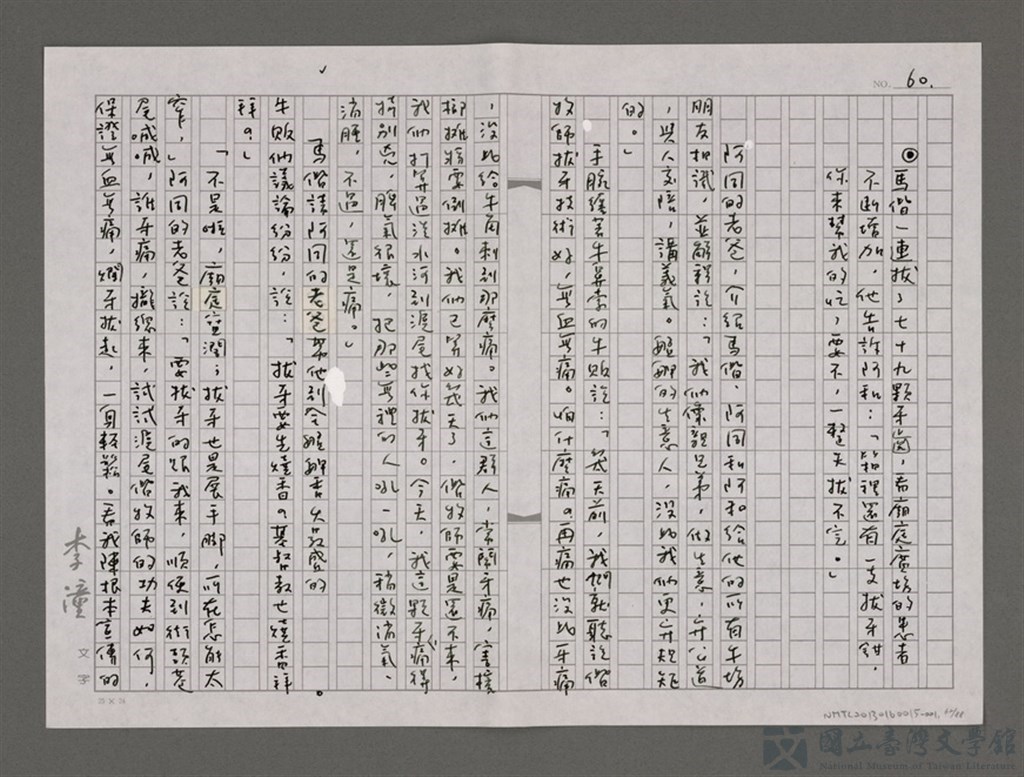 NO. 60.
◎馬偕一連拔了七十九顆牙齒,看廟庭廣場的患者
不斷增加,他告訴阿和:「箱裡還有一支拔牙鉗,
你來幫我的忙,要不,一整天拔不完。」
阿同的老爸,介紹馬偕、阿同和阿和給他的所有牛埸
朋友相識,並解釋說:「我們像親兄弟,做生意,公道
,與人交陪,講義氣。艋舺的生意人,沒比我們更規矩
的。」
手腕繞著牛鼻索的牛販說:「幾天前,我們就聽說偕
牧師拔牙技術好,無血無痛。怕什麼痛?再痛也沒比牙痛
,沒比給牛角刺到那麼痛。我們這群人,常鬧牙痛,害檳
榔攤將要倒攤。我們已算好幾天了,偕牧師要是還不來,
我們打算過淡水河到滬尾找你拔牙。今天,我這顆牙痛得
特別兇,脾氣很壞,把那些無禮的人吼一吼,稍微消氣、
消腫,不過,還是痛。」
馬偕請阿同的老爸帶他到全艋舺香火最盛的
牛販們議論紛紛,說:「拔牙要先燒香?基督教也燒香拜
拜?」
「不是啦,廟庭空濶;拔牙也是展手腳,所在怎能太
窄,」阿同的老爸說:「要拔牙的跟我來,順便到街頭巷
尾喊喊,誰牙痛,攏總來,試試滬尾偕牧師的功夫如何,
保證無血無痛,爛牙拔起,一身輕鬆。看我陳根本宣傳的
李潼
文字
25 × 24
NMTL20130160015-001, 60/88
國立臺灣文學館
National Museum of Taiwan Literature